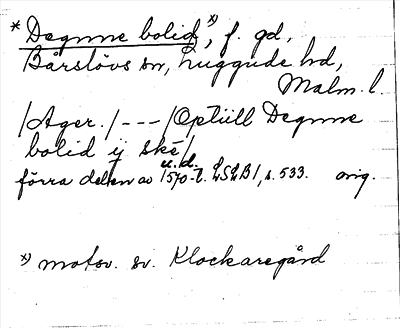 * Degnne bolid *), f. gd,
Bårslövs sn, Luggude hd,
Malm. l.
/Ager./ --- / Optiill Degnne
bolid ij ské/
u.d.
förra delen av 1570-t. LSLB1, s. 533. orig.
*) motsv. sv. Klockaregård